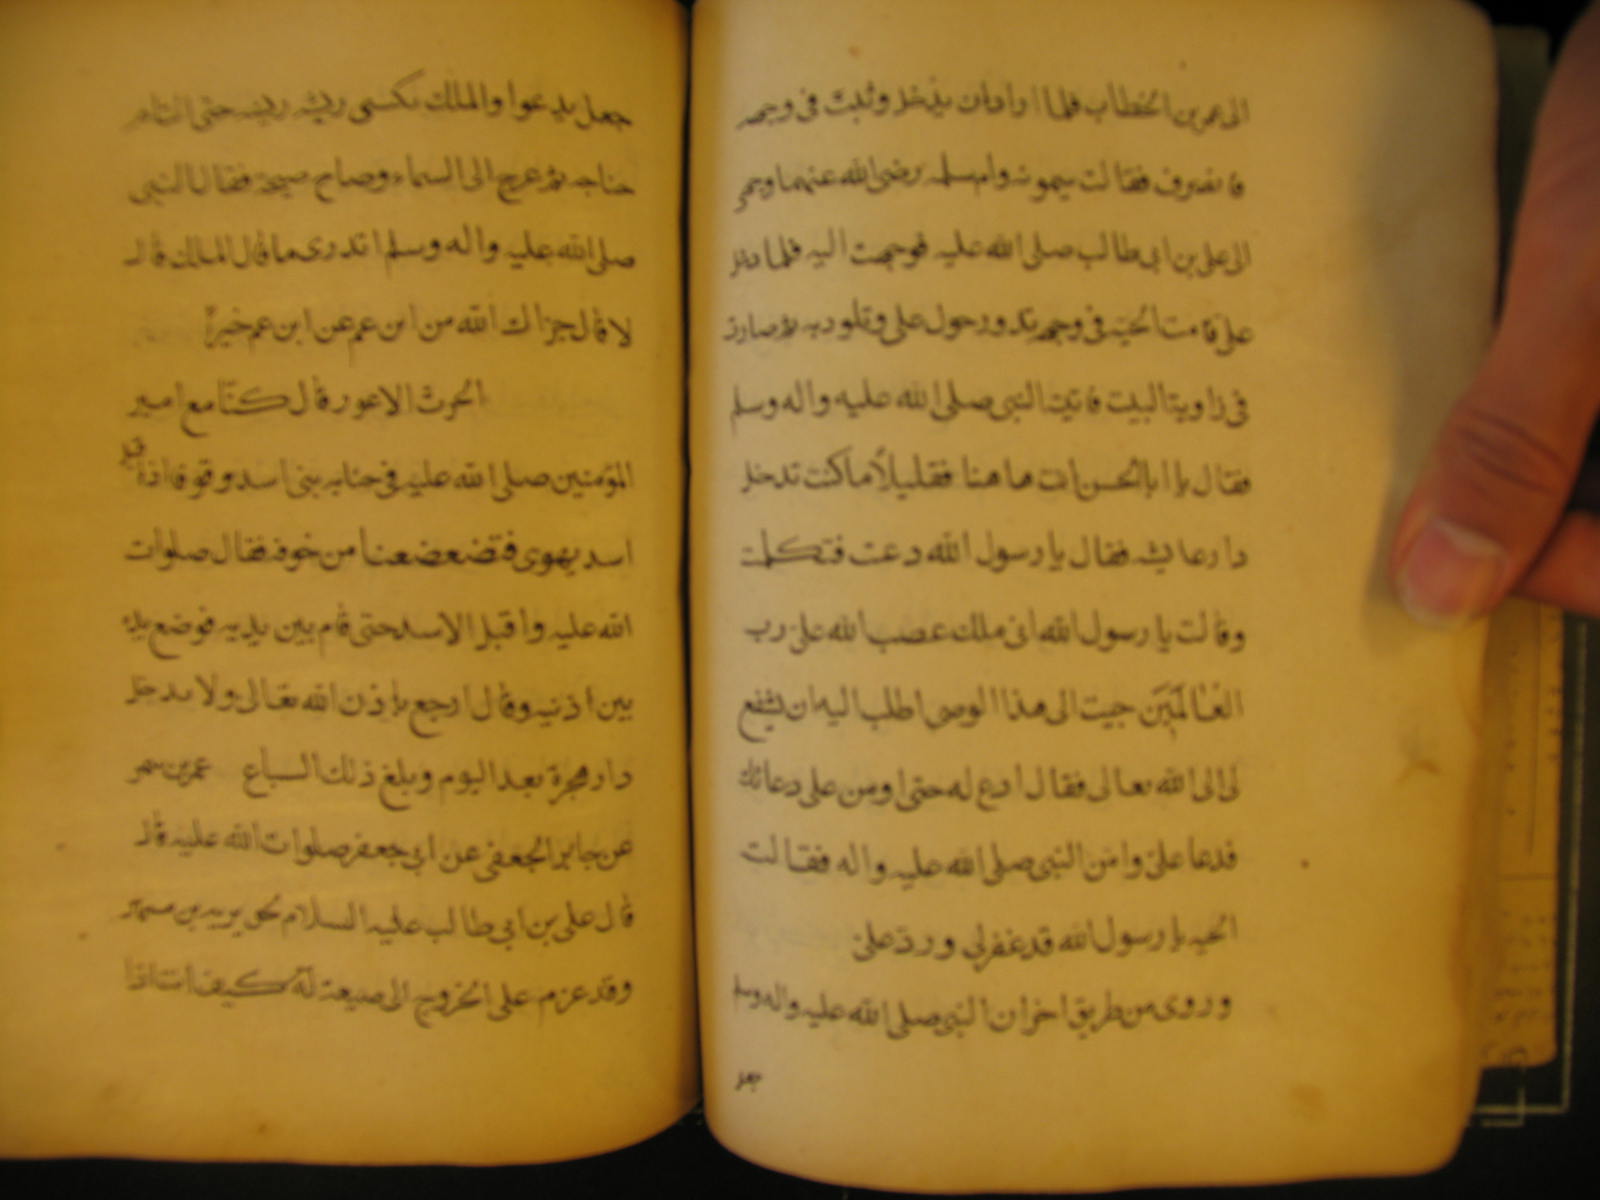 الى عمر بن الخطاب فلما اراد ان يدخل وثبت فى وجهه
فانصرف فقالت ميمونه وام سلمه رضى الله عنهما وجهى
الى على بن ابى طالب صلى الله عليه فوجهت اليه فلما دخل
على قامت الحيه فى وجهه تدور حول على وتلوذ به ثم صارت
فى زاوية البيت فانتبه النبى صلى الله عليه واله وسلم
فقال يا ابا الحسن انت هاهنا فقليلاً ما كنت تدخل
دار عايشه فقال يا رسول الله دعت فتكلمت
وقالت يا رسول الله انى ملك غضب الله على رب
العالمين جيت الى هذا الوصى اطلب اليه ان يشفع
لى الى الله تعالى فقال ادع له حتى اومن على دعائك
فدعا على وامن النبى صلى الله عليه واله فقالت
الحيه يا رسول الله قد غفر لى ورد على
وروى من طريق اخر ان النبى صلى الله عليه واله وسلم
جعل
جعل يدعوا والملك يكسى ريشه ريشه حتى التام
جناحه ثم عرج الى السماء وصاح صيحة فقال النبى
صلى الله عليه واله وسلم اتدرى ما قال الملك قال
لا قال جزاك الله من ابن عم عن ابن عم خيراً
الحرث الاعور قال كنّا مع امير
المؤمنين صلى الله عليه فى جنابه بنى اسد وقوفا اذ اقبل
اسد يهوى فتضعضعنا من خوفه فقال صلوات
الله عليه واقبل الاسد حتى قام بين يديه فوضع يده
بين اذنيه وقال ارجع باذن الله تعالى ولا تدخل
دار هجرة بعد اليوم وبلغ ذلك السباع عمر بن شمر
عن جابر الجعفى عن ابى جعفر صلوات الله عليه قال
قال على بن ابى طالب عليه السلام
وقد عزم على الخروج الى ضيعة له كيف انت اذا